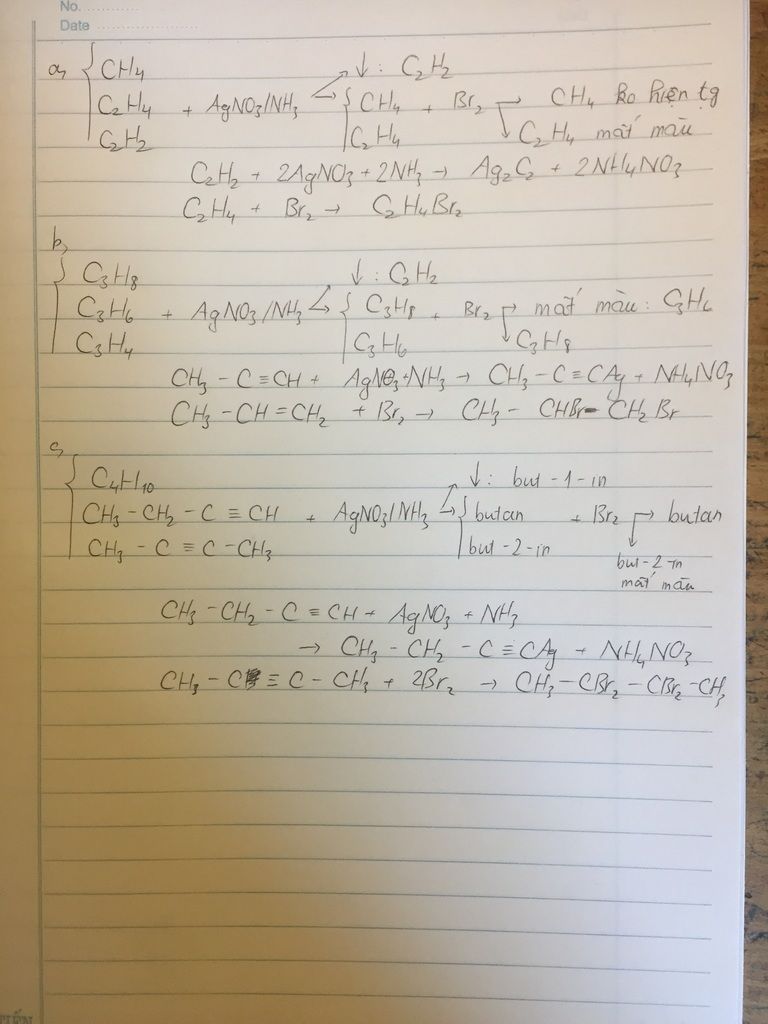 No. ..............
Date ......................
a, { CH4
C2H4 + AgNO3/NH3 → ↓ : C2H2
C2H2 { CH4 + Br2 → CH4 ko hiện tg
C2H4 → C2H4 mất màu
C2H2 + 2AgNO3 + 2NH3 → Ag2C2 + 2NH4NO3
C2H4 + Br2 → C2H4Br2
b,
{ C3H8 ↓ : C2H2
C3H6 + AgNO3/NH3 → { C3H8 + Br2 → mất màu : C3H6
C3H4 C3H6 → C3H8
CH3 - C ≡ CH + AgNO3 + NH3 → CH3 - C ≡ CAg + NH4NO3
CH3 - CH = CH2 + Br2 → CH3 - CHBr - CH2Br
c,
{ C4H10 ↓ : but-1-in
CH3 - CH2 - C ≡ CH + AgNO3/NH3 → { butan + Br2 → butan
CH3 - C ≡ C - CH3 but-2-in but-2-in
mất màu
CH3 - CH2 - C ≡ CH + AgNO3 + NH3
→ CH3 - CH2 - C ≡ CAg + NH4NO3
CH3 - C ≡ C - CH3 + 2Br2 → CH3 - CBr2 - CBr2 - CH3
TIẾN